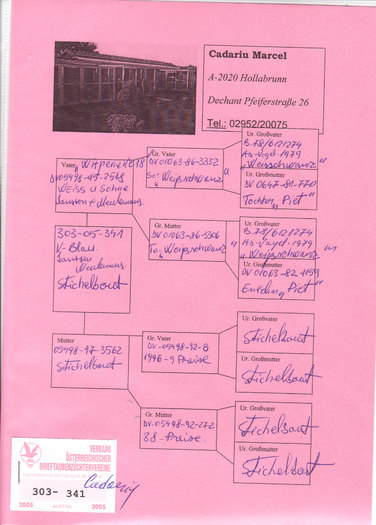 Cadariu Marcel
A-2020 Hollabrunn
Dechant Pfeiferstraße 26
Tel.: 02952/20075
Vater
Weiss u Sohge
Janssen + Meulemans.
303-05-341
V-Blau.
Janssen
Meulemans
Stichelbaut
Mutter
05498-97-3562
Stichelbaut
Gr. Vater
DV 01063-86-3332
So: Weißschwanz"
Gr. Mutter
DV 01063-86-3306
To. Weißschwanz
Gr. Vater
DV-05498-92-8
1996-9 Preise
Gr. Mutter
DV-05498-92-272
38-Preise.
Ur. Großvater
B.78/6121274
As-Vogel-1979
"Weisschwanz"
Ur. Großmutter
DV 0647-81-770
Tochter "Piet"
Ur. Großvater
B.78/6121274
As-Vogel-1979
"Weißschwanz"
Ur. Großmutter
DV 01063-82-1159
Enkelin "Piet"
Ur. Großvater
Stichelbaut
Ur. Großmutter
Stichelbaut
Ur. Großvater
Stichelbaut
Ur. Großmutter
Stichelbaut
VERBAND
ÖSTERREICHISCHER
BRIEFTAUBENZÜCHTERVEREINE
303- 341
2005 AUSTRIA 2005